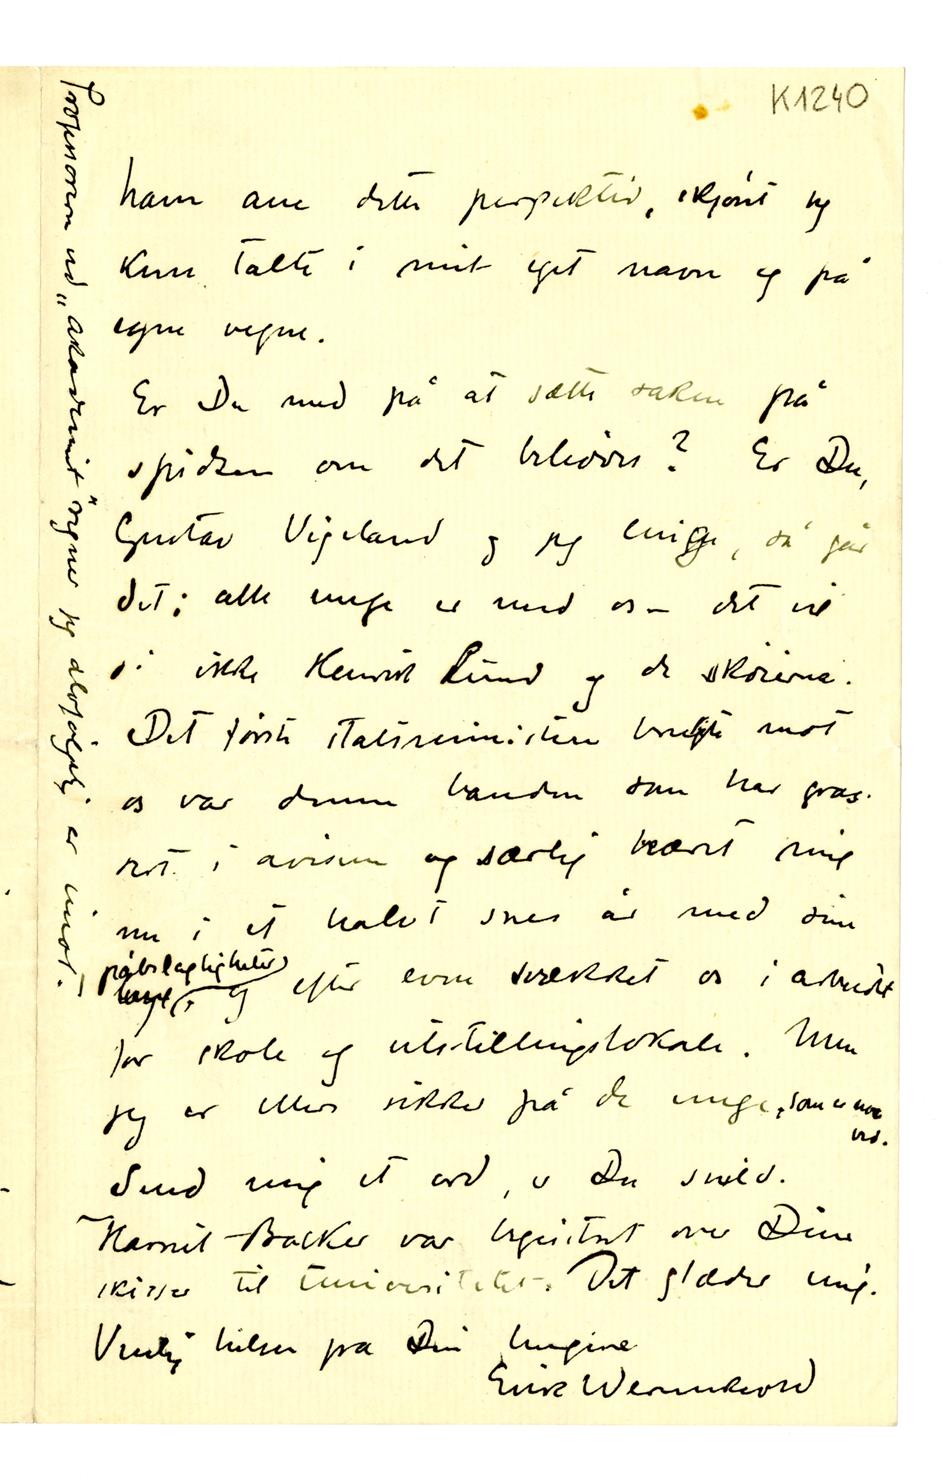 K1240
ham ane dette perspektiv, skjønt jeg
kun talte i mit eget navn og på
egne vegne.
Er Du med på at sætte saken på
spidsen om det behøves? Er Du,
Gustav Vigeland og jeg enige, så går
det; alle unge er med os – det vil
si ikke Henrik Lund og de skøierne.
Det første statsministeren brugte mot
os var denne banden som har gras-
sert i avisene og særlig beæret mig
nu i et halvt snes år med sin
påtrslagtigheter
og efter evne svækket os i arbeidet
for skole og utstillingslokale. Men
jeg er ellers sikker på de unge, som er noe
ved.
Send mig et ord, er Du snild.
Harriet Backer var begeistret over Dine
skisser til Universitetet. Det glæder mig.
Venlig hilsen fra Din hengivne
Erik Werenskiold
Professoren ved "akademiet" regner jeg alvsfølgelig er imot.